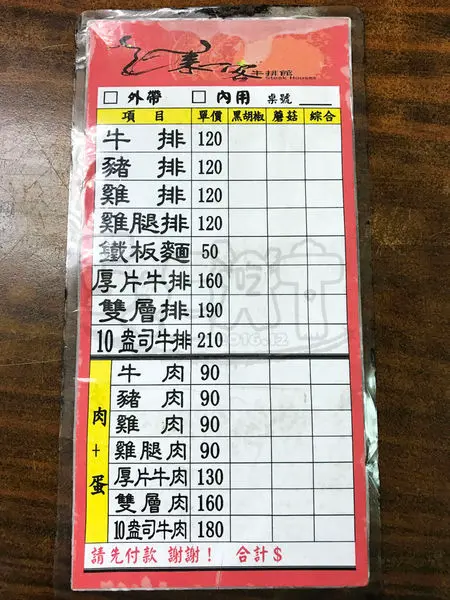 客牛排館
Steak Houses
□ 外帶 □ 內用 桌號
項 目 單價 黑胡椒 蘑菇 綜合
牛 排 120
豬 排 120
雞 排 120
雞腿排 120
鐵板麵 50
厚片牛排 160
雙層排 190
10盎司牛排 210
肉+蛋
牛 肉 90
豬 肉 90
雞 肉 90
雞腿肉 90
厚片牛肉 130
雙層肉 160
10盎司牛肉 180
請先付款 謝謝! 合計$
2016.12